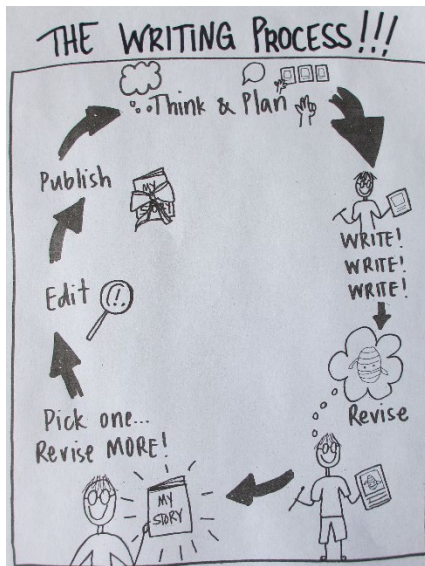 THE WRITING PROCESS!!!
Think & Plan
WRITE!
WRITE!
WRITE!
Revise
MY
STORY
Pick one...
Revise MORE!
Edit !!
Publish
MY